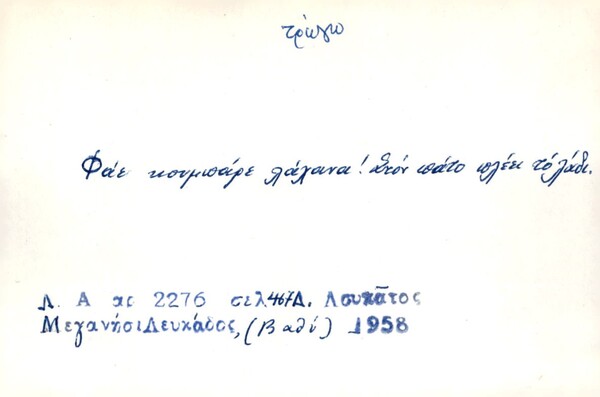 τρώγω
Φάε κουμπάρε λάχανα! Στόν πάτο πλέει τό λάδι.
Λ. Α ας 2276 σελ 467 Δ. Λουκᾶτος
Μεγανήσι Λευκάδος, (Βαθύ) 1958